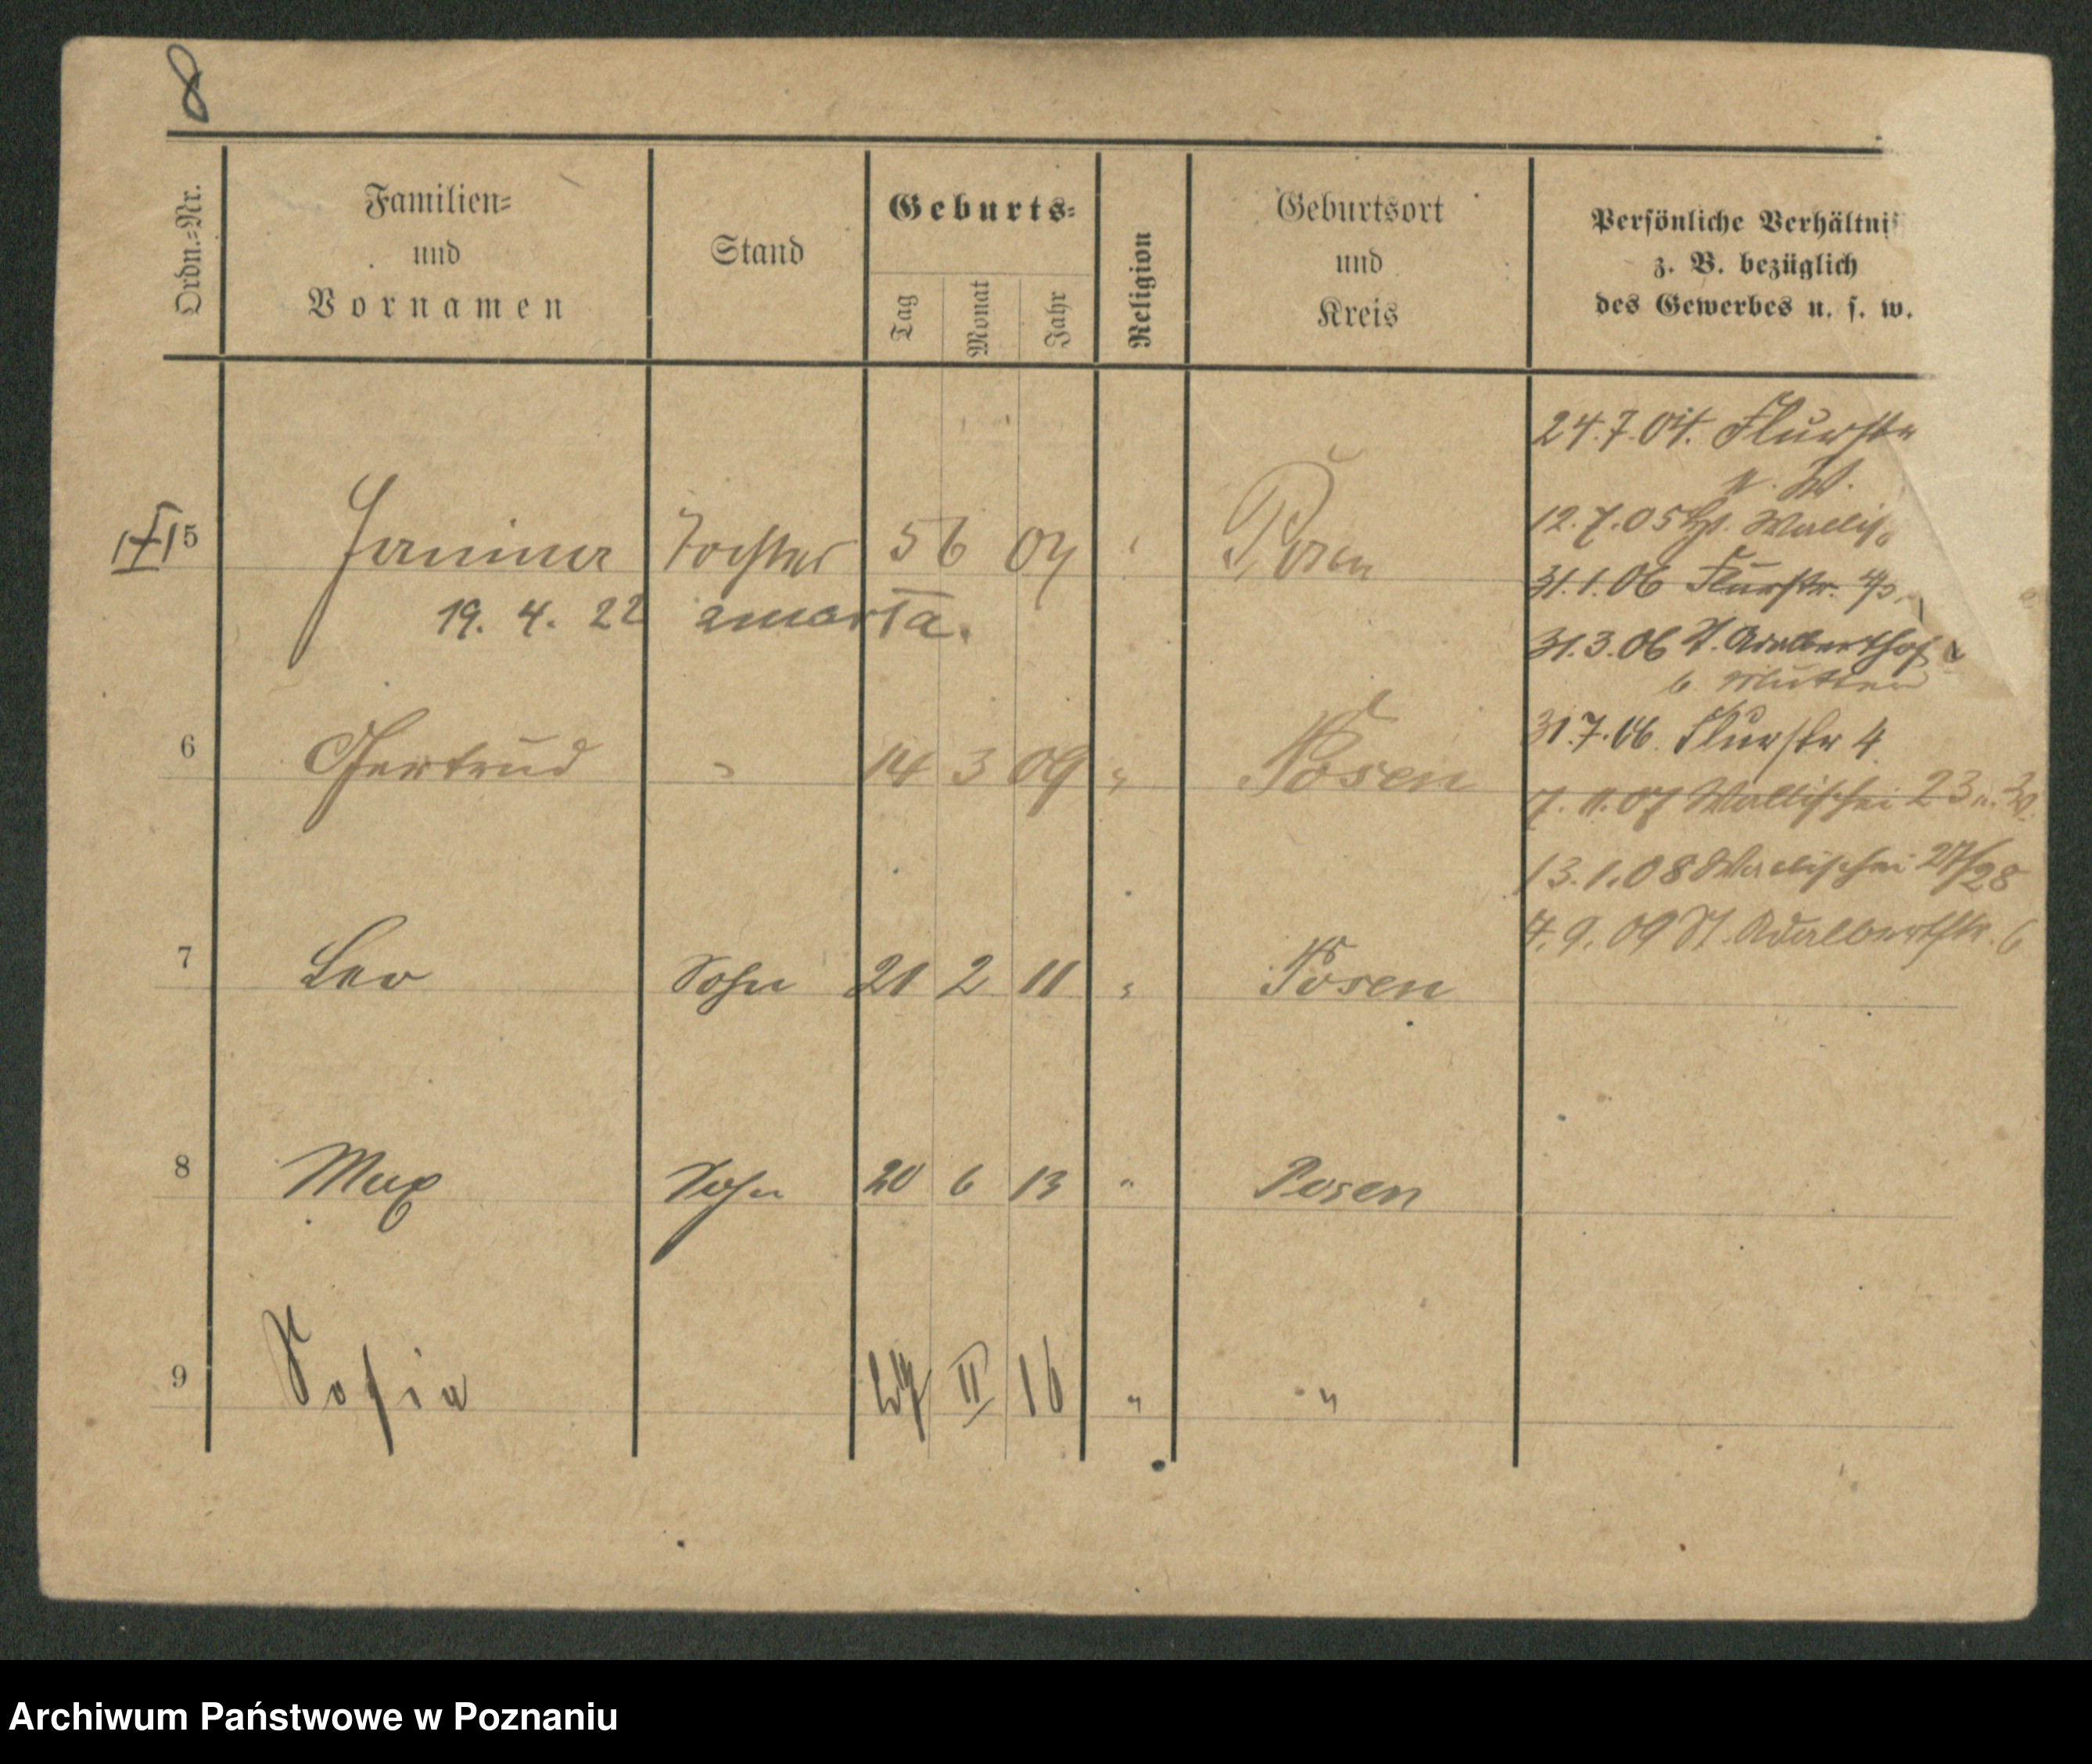 8
Ordn.=Nr.
Familien=
und
Vornamen
Stand
Geburts=
Tag
Monat
Jahr
Religion
Geburtsort
und
Kreis
Persönliche Verhältnis
z. B. bezüglich
des Gewerbes u. s. w.
24.7.04. Flurstr
n. W.
12.7.05 Wallis
31.1.06 Flurstr.
31.3.06 St. Adalberthof
b. Mutter
31.7.06. Flurstr 4
7.11.07 Wallischei 23 n. W.
13.1.08 Wallischei 27/28
4.9.09 St. Adalbertstr. 6
5 Janina Tochter 5 6 04 " Posen
19. 4. 22 zmarła.
6 Gertrud " 14 3 09 " Posen
7 Leo Sohn 21 2 11 " Posen
8 Max Sohn 20 6 13 " Posen
9 Sofia 27 II 16 " "
Archiwum Państwowe w Poznaniu